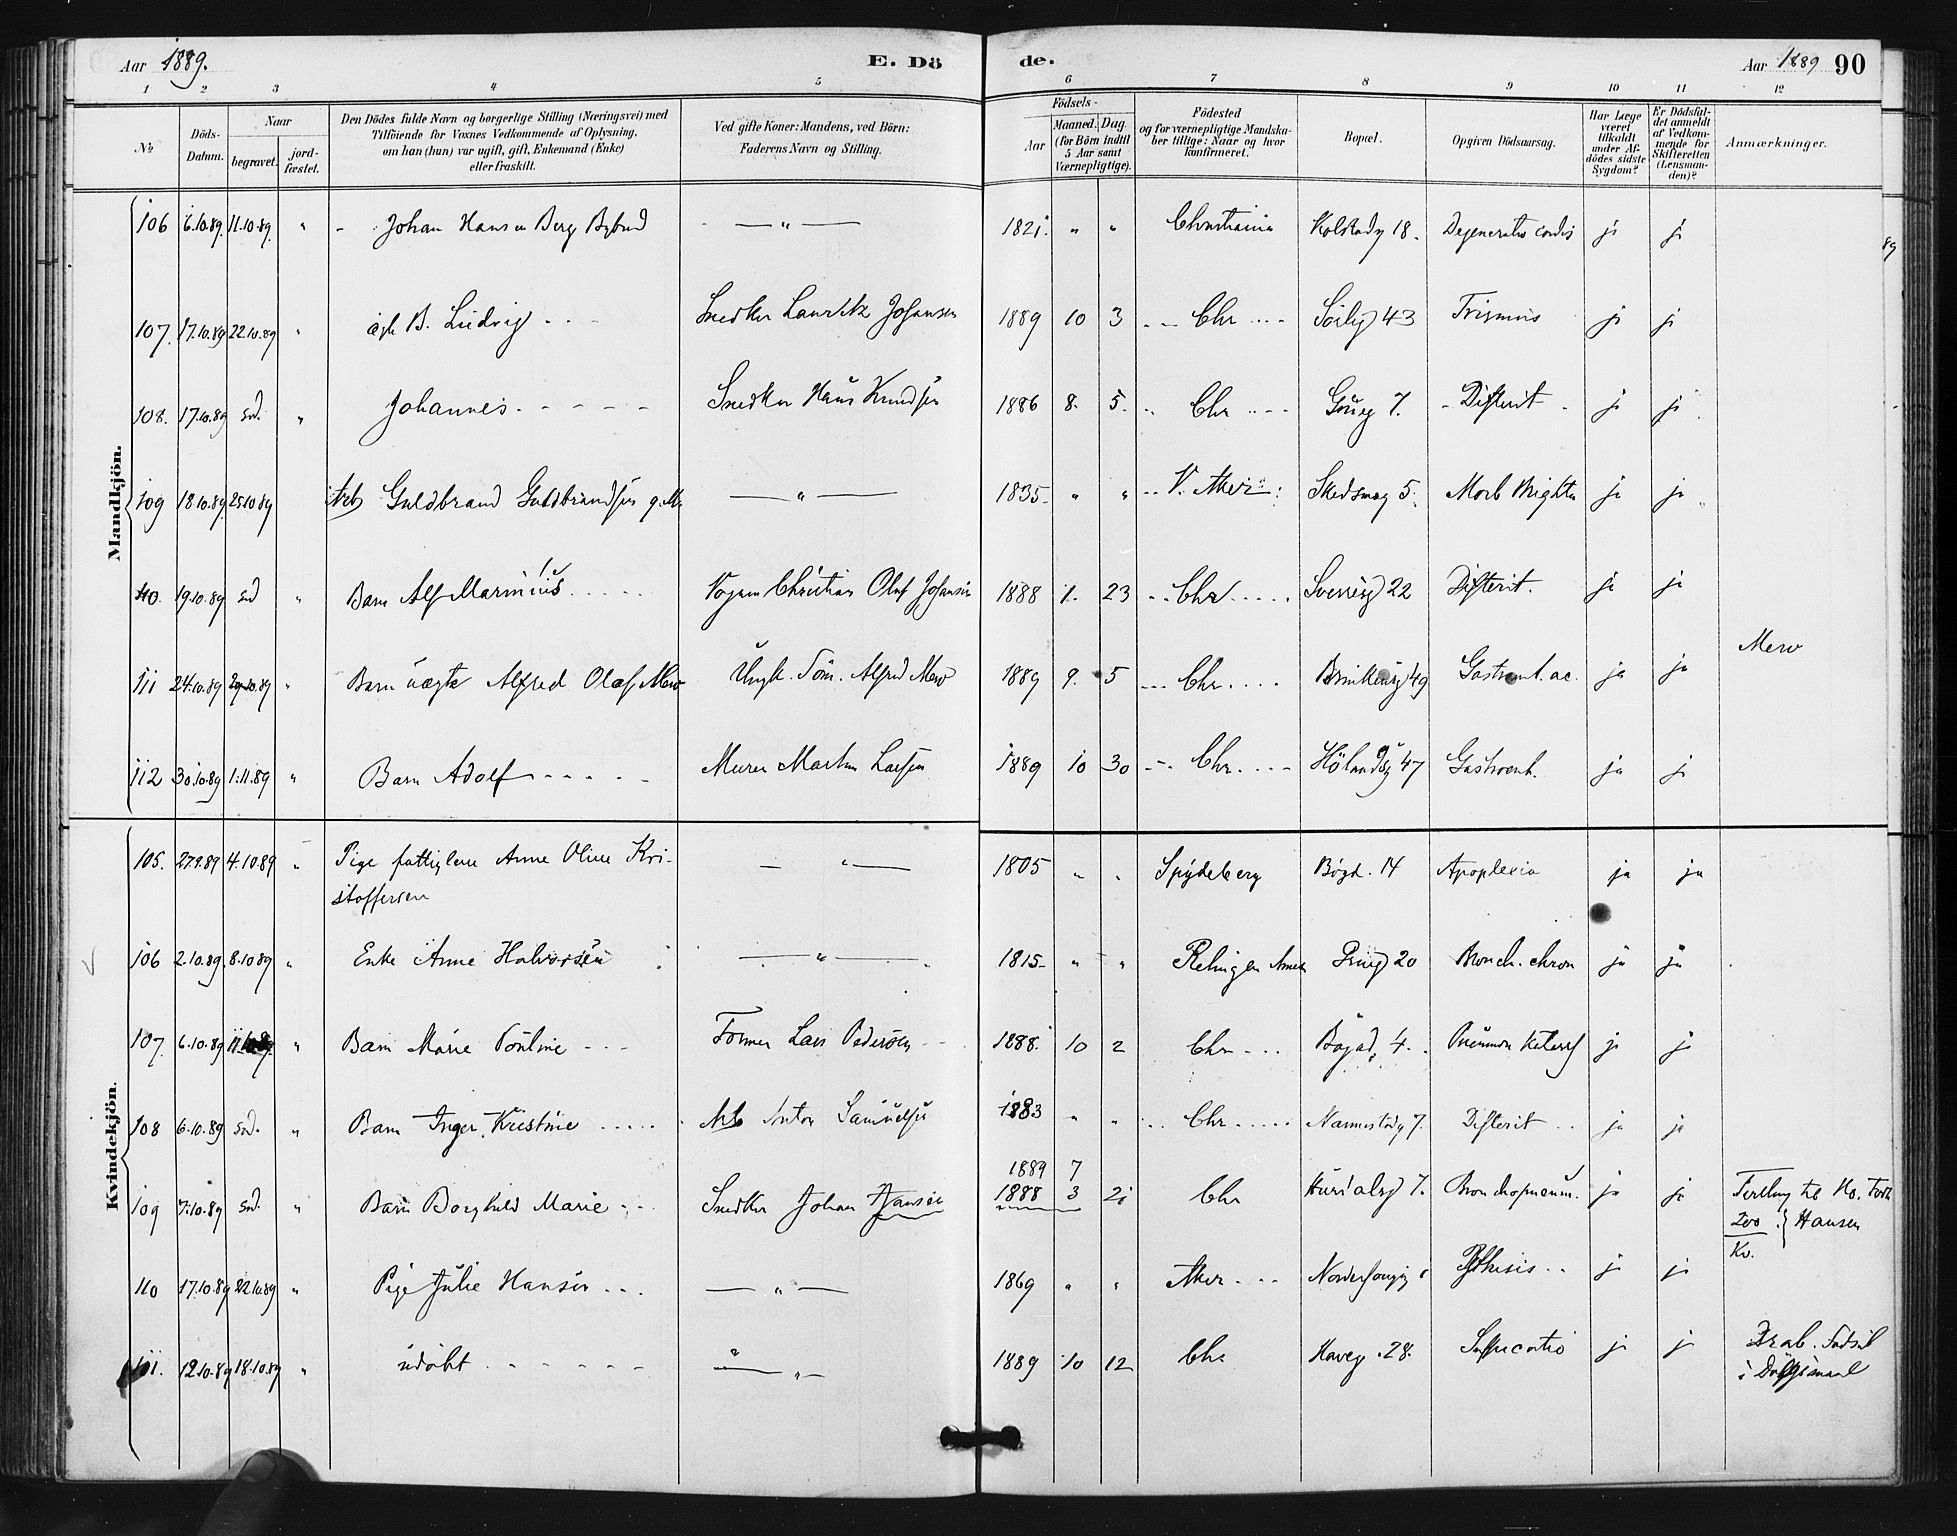 Aar 1889. E. Dö de. Aar 1889 90
1 2 3 4 5 6 7 8 9 10 11 12
No
Döds-
Datum.
Naar
begravet.
jord-
fæstet.
Den Dödes fulde Navn og borgerlige Stilling (Næringsvei) med
Tilföiende for Voxnes Vedkommende af Oplysning,
om han (hun) var ugift, gift, Enkemand (Enke)
eller fraskilt.
Ved gifte Koner: Mandens, ved Börn:
Faderens Navn og Stilling.
Födsels-
Aar
Maaned. Dag
(for Börn indtil
5 Aar samt
Værnepligtige).
Födested
og for værnepligtige Mandska-
ber tillige: Naar og hvor
konfirmeret.
Bopæl.
Opgiven Dödsaarsag.
Har Læge
været
tilkaldt
under Af-
dödes sidste
Sygdom?
Er Dödsfal-
det anmeldt
af Vedkom-
mende for
Skifteretten
(Lensman-
den)?
Anmærkninger.
Mandkjön.
106 6.10.89. 11.10.89. " - Johan Hansen Berg — " — 1821. " " Christiania 18. Degeneratio cordis ja ja
107. 17.10.89 22.10.89 " B. Ludvig Snedker Lauritz Johansen 1889 10 3 Chr 43 Trismus ja ja
108. 17.10.89 sd. " Johannes Snedker Hans Knudsen 1886 8. 5. Chr 7. Difterit ja ja
109 18.10.89. 25.10.89 Arb Guldbrand Guldbrandsen g. M. — " — 1835 " " V. Aker Skedsmog 5. Morb Brightii ja ja
110. 19.10.89 sd " Barn Alf Marinius Christian Olaf Johansen 1888 1. 23 Chr 22 Difterit. ja ja
111 24.10.89 29.10.89 " Barn uægte Alfred Olaf Mew Ungk. Töm. Alfred Mew 1889 9. 5 Chr. 49 Gastroent. ac. ja ja Mew
112 30.10.89 1.11.89 " Barn Adolf Murer Martin Larsen 1889 10 30 Chr. Hölandsg 47 Gastroent. ja ja
Kvindekjön.
105. 27.9.89 4.10.89 " Pige fattiglem Anne Oline Kri-
stoffersen — " — 1805 " " Spydeberg Böyd. 14 Apoplexia ja ja
106 2.10.89 8.10.89 " Enke Anne Halvorsen — " — 1815 " " 20 Bronch. chron ja ja
107. 6.10.89 " Barn Marie Pouline Former Lars Pedersen 1888. 10 2 Chr 4. Pneumon Katarrh ja ja
108 6.10.89 sd. " Barn Inger Kristine Arb Anton Samuelsen 1883 " " Chr 7. Difterit ja ja
1889 7
109 7.10.89 sd. " Barn Borghild Marie Snedker Johan Hansen 1888 3 21 Chr 7. Bronchopneum. ja ja til No.
200 Hansen
Kv.
110 17.10.89 22.10.89 " Pige Julie Hansen — " — 1869 " " Aker Phthisis ja ja
111. 12.10.89 18.10.89 " udöbt — " — 1889 10 12 Chr Haveg. 28. Suffocatio ja ja
i Dölgsmaal